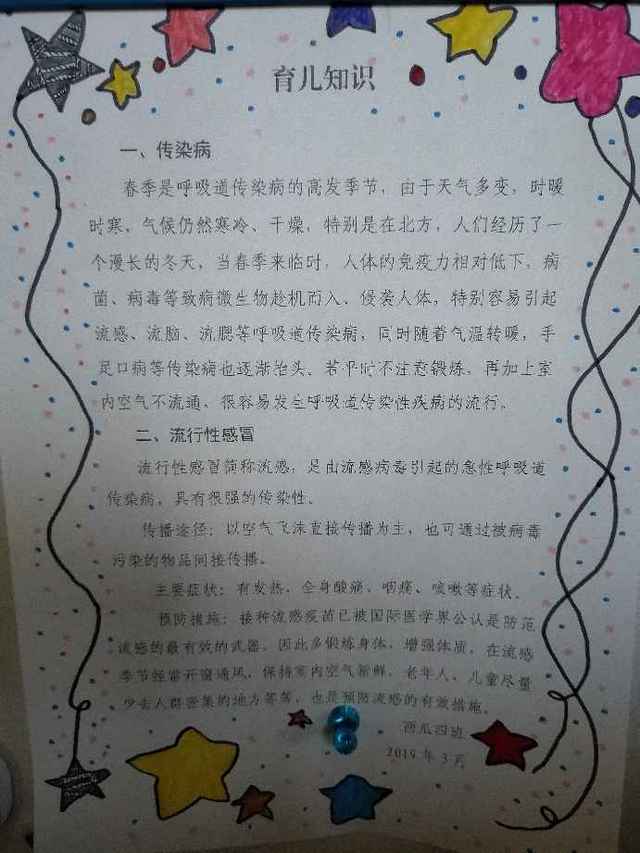 育儿知识
一、传染病
春季是呼吸道传染病的高发季节，由于天气多变，时暖
时寒，气候仍然寒冷、干燥，特别是在北方，人们经历了一
个漫长的冬天，当春季来临时，人体的免疫力相对低下，病
菌、病毒等致病微生物趁机而入、侵袭人体，特别容易引起
流感、流脑、流腮等呼吸道传染病，同时随着气温转暖，手
足口病等传染病也逐渐抬头、若平时不注意锻炼，再加上室
内空气不流通、很容易发生呼吸道传染性疾病的流行。
二、流行性感冒
流行性感冒简称流感，是由流感病毒引起的急性呼吸道
传染病，具有很强的传染性。
传播途径：以空气飞沫直接传播为主，也可透过被病毒
污染的物品间接传播。
主要症状：有发热、全身酸痛、咽痛、咳嗽等症状。
预防措施：接种流感疫苗已被国际医学界公认是防范
流感的最有效的武器。因此多锻炼身体，增强体质，在流感
季节经常开窗通风，保持室内空气新鲜，老年人、儿童尽量
少去人群密集的地方等等，也是预防流感的有效措施。
西瓜四班
2019 年 3 月